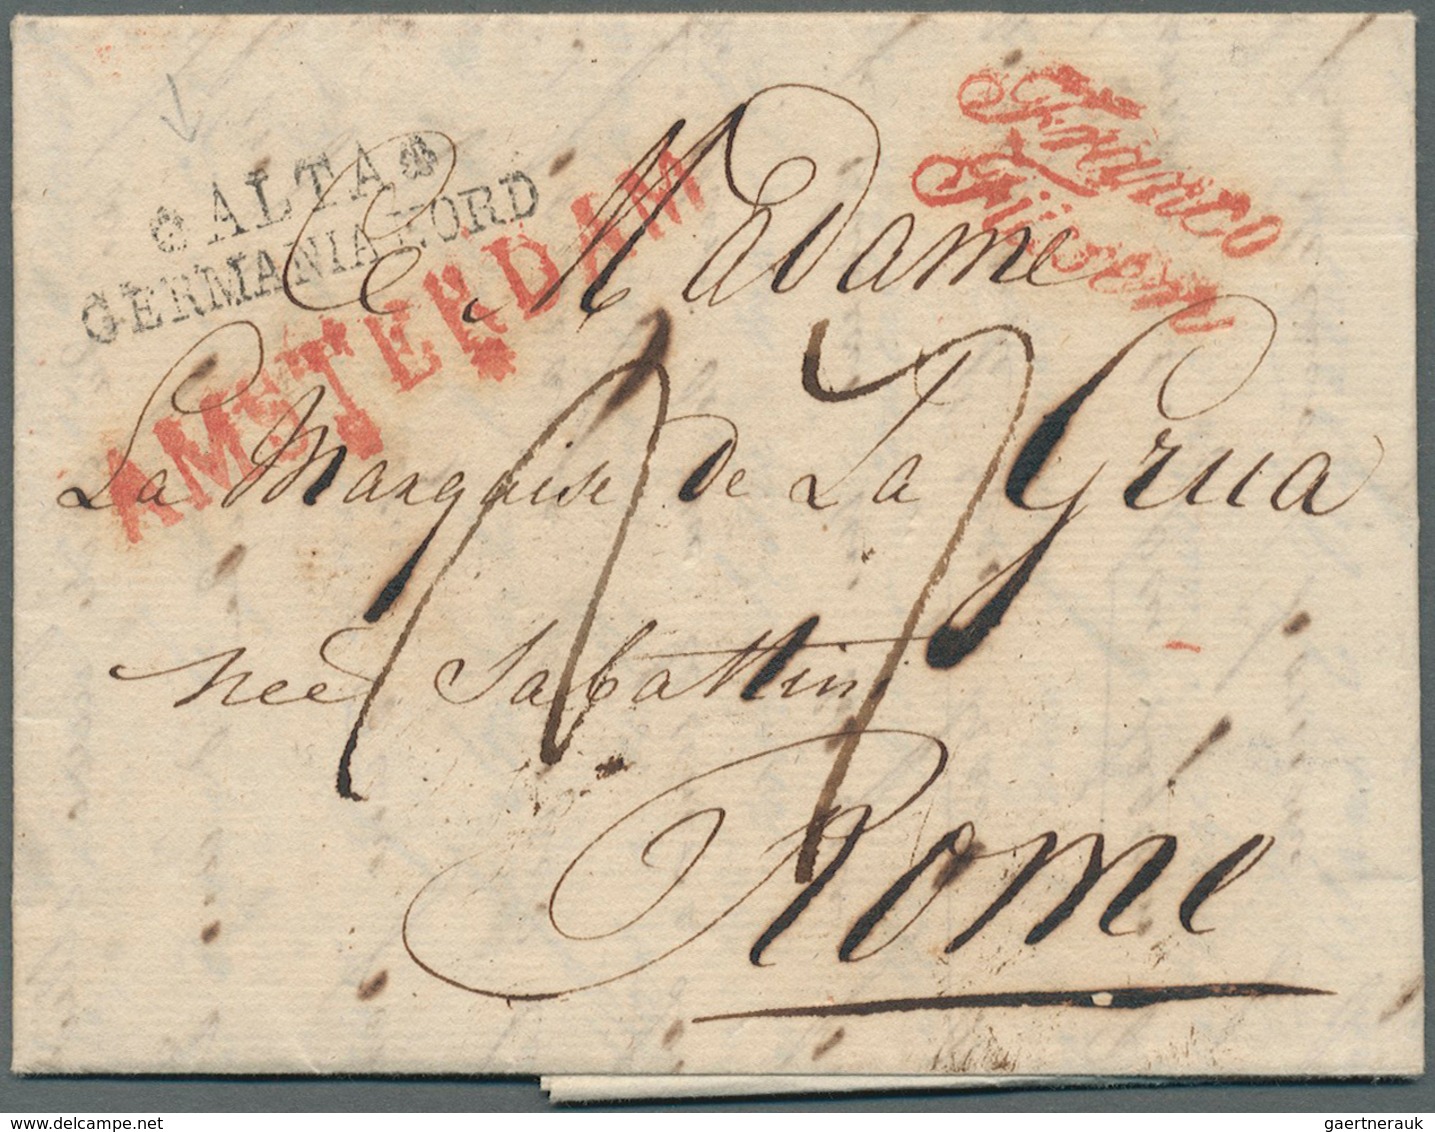 ALTA
GERMANIA NORD
AMSTERDAM
Franco
A Madame
La Marquise de La Grua
neé Sabattini
Rome
delcampe.net
gaertnerauk